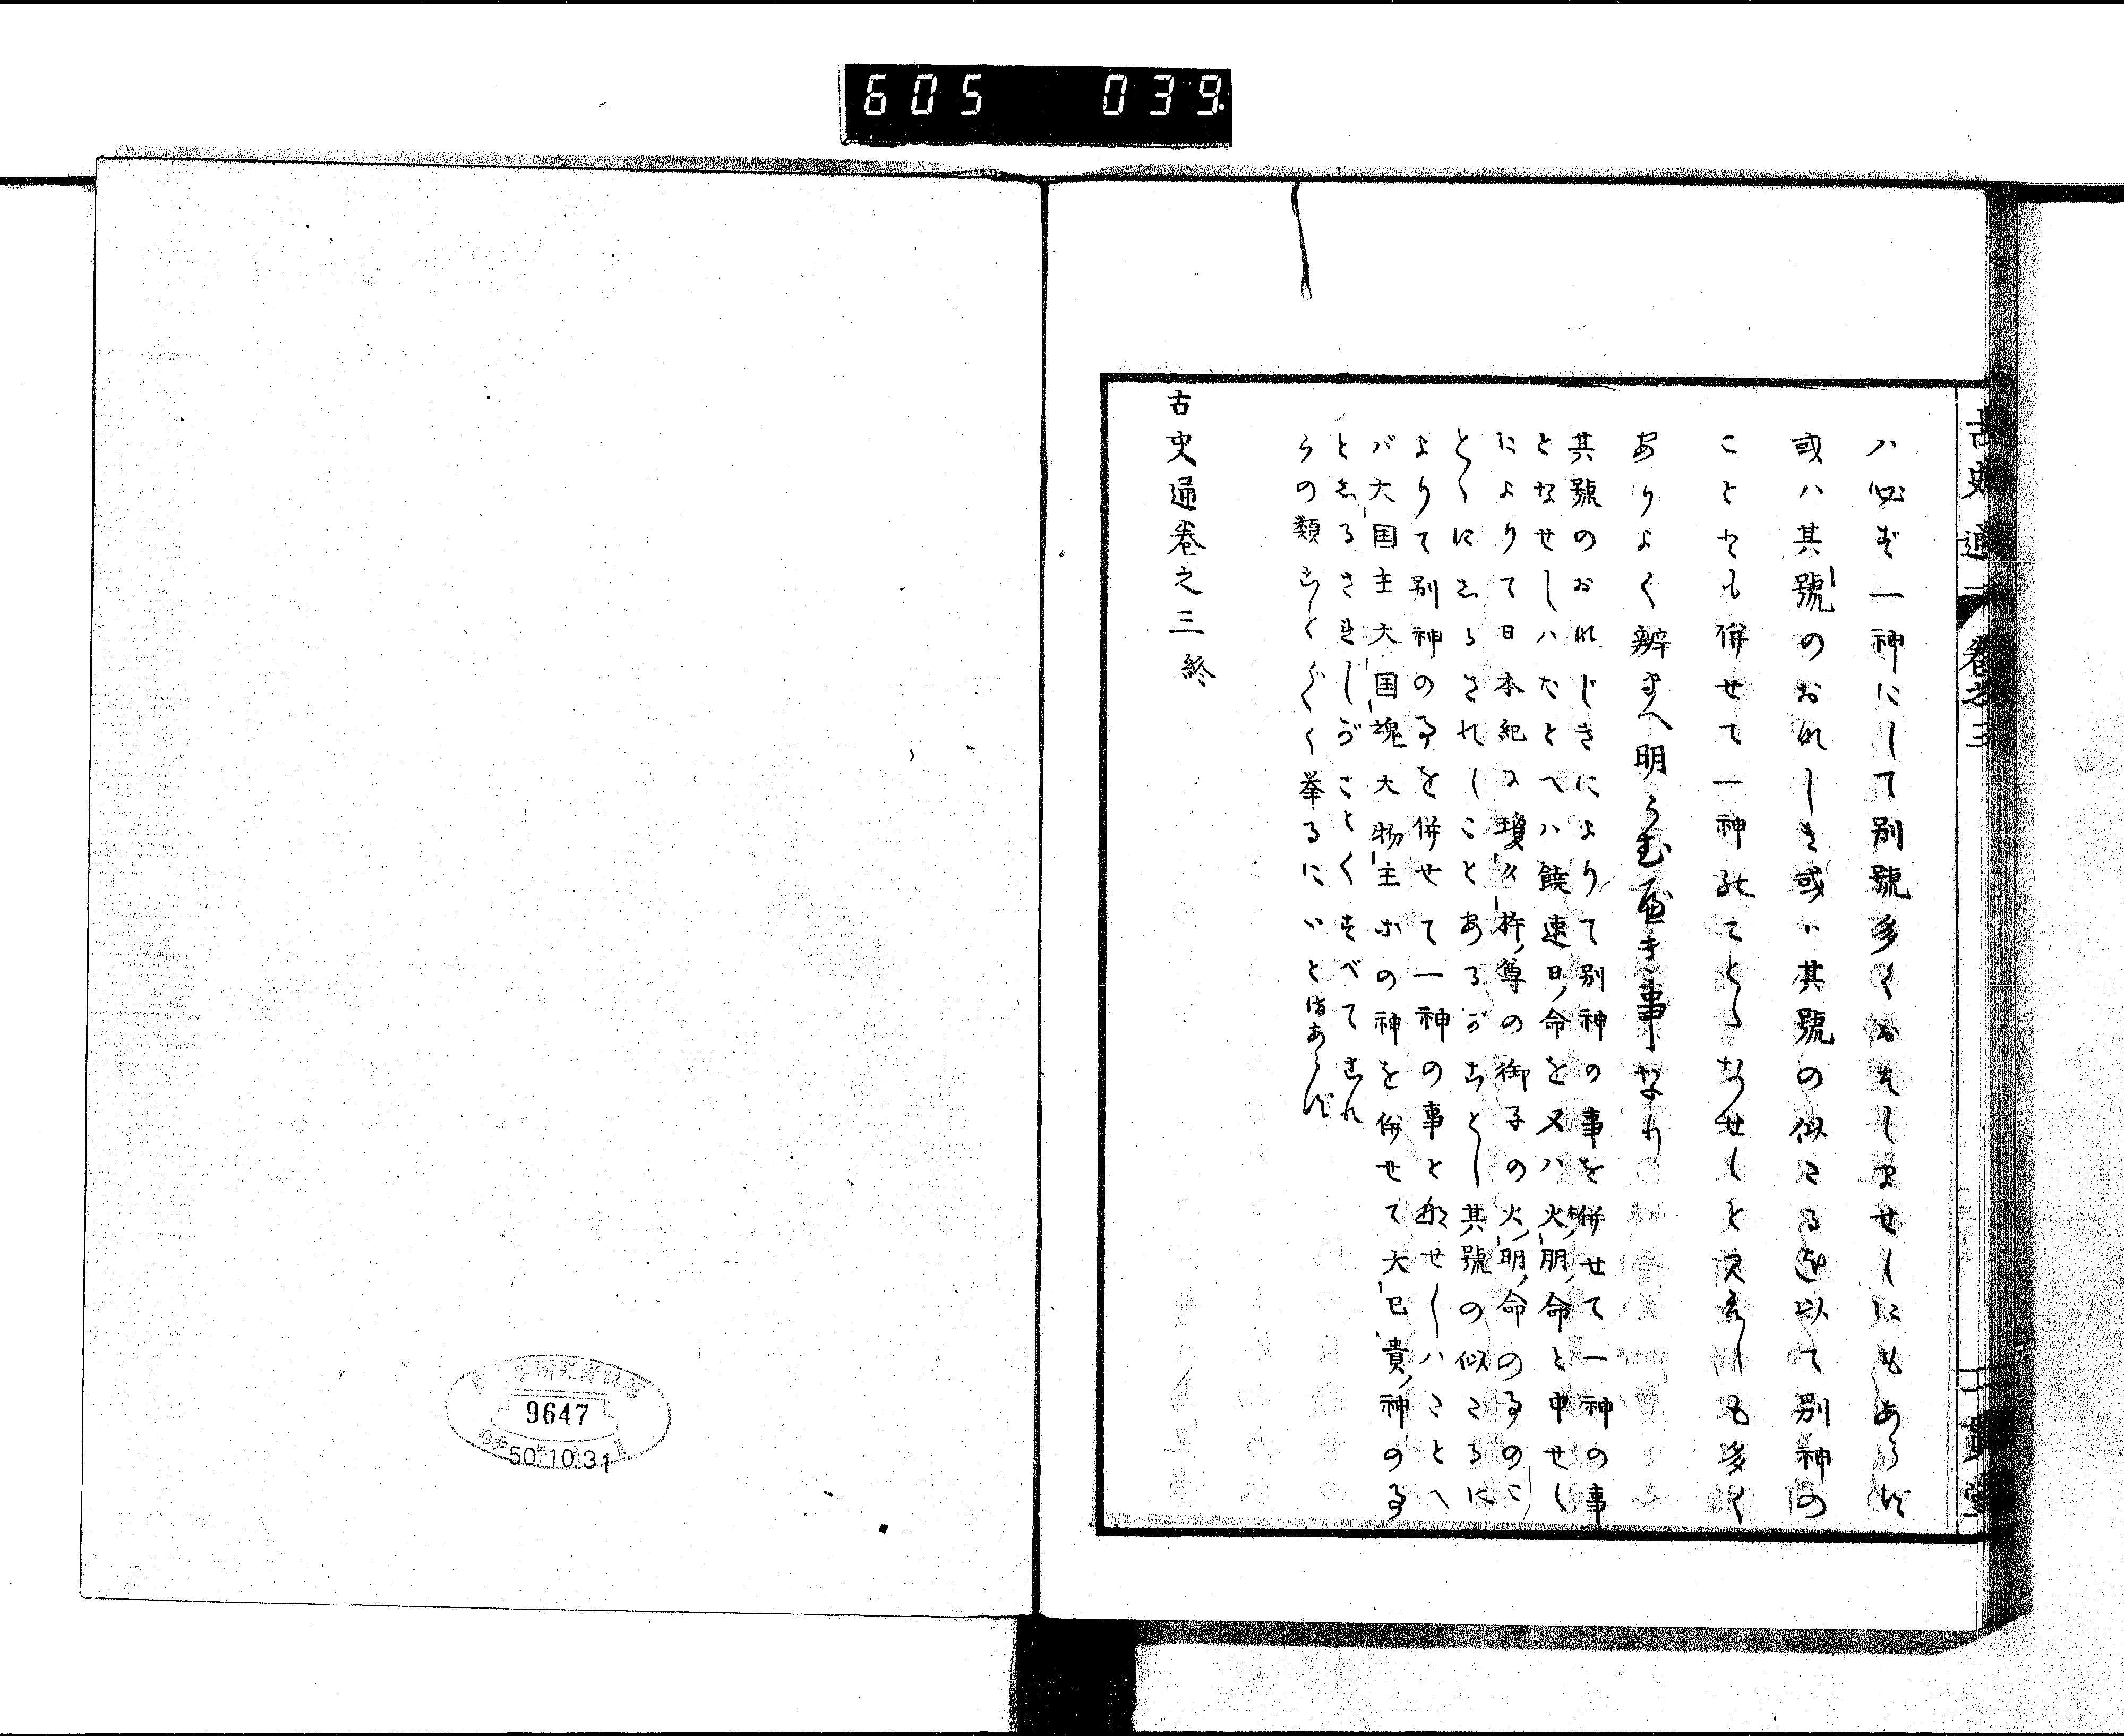 605 039
古史通 卷之三
ハ必ず一神にして別號多くおはしませしにもあらず
或ハ其號のおなしき或ハ其號の似たるを以て別神の
ことをも併せて一神のことゝなせしと見えしも多く
ありよく辨まへ明らむべき事なり
其號のおなじきによりて別神の事を併せて一神の事
となせしハたとへハ饒速日命を又ハ火明命と申せし
によりて日本紀に瓊々杵尊の御子の火明命の事のこ
とくにしるされしことあるがことし其號の似たるに
よりて別神の事を併せて一神の事となせしハたとへ
バ大国主大国魂大物主等の神を併せて大己貴神の事
としるされしがことくすべてこれ
らの類ことごとく挙るにいと
古史通卷之三終
9647
50.10.31